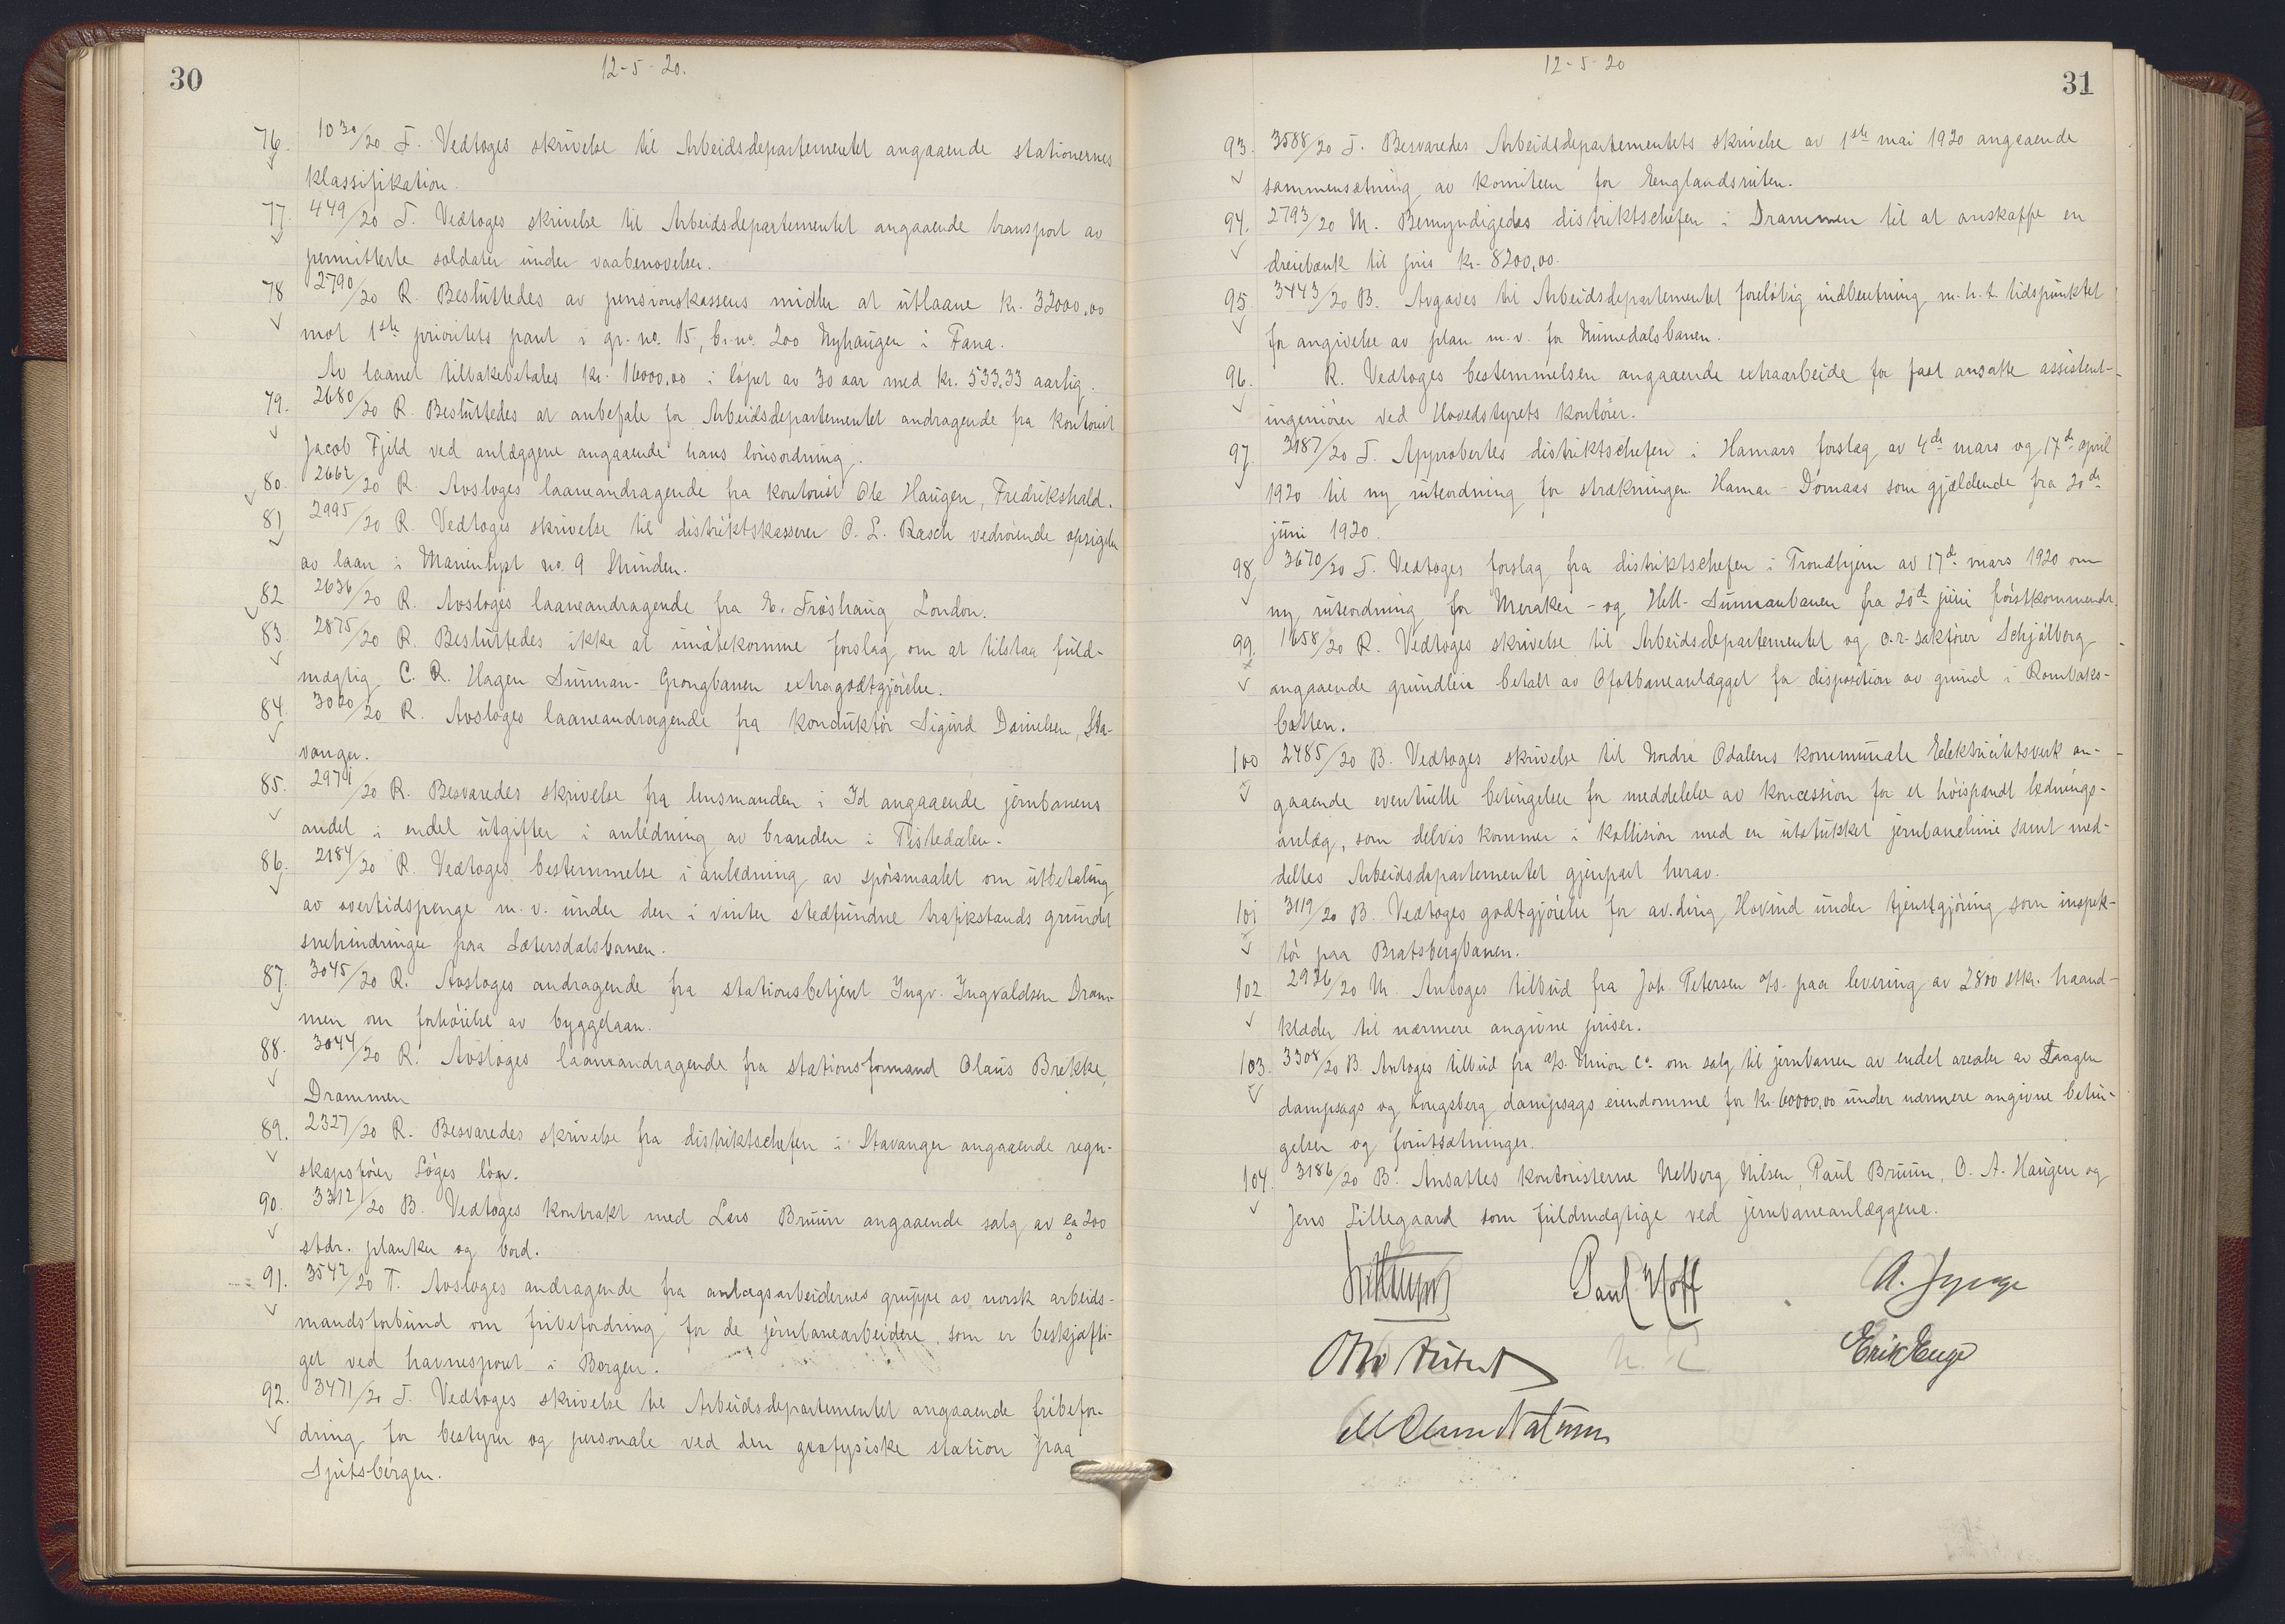 30
12-5-20.
76. 1030/20 T. Vedtoges skrivelse til Arbeidsdepartementet angaaende stationernes
klassifikation.
77. 449/20 T. Vedtoges skrivelse til Arbeidsdepartementet angaaende transport av
permitterte soldater under vaabenøvelser.
78 2790/20 R. Besluttedes av pensionskassens midler at utlaane kr. 32000,00
mot 1ste prioritets pant i gr. no. 15, br. no. 200 Nyhaugen i Fana.
Av laanet tilbakebetales kr. 16000,00 i løpet av 30 aar med kr. 533,33 aarlig.
79. 2680/20 R. Besluttedes at anbefale for Arbeidsdepartementet andragende fra kontorist
Jacob Fjeld ved anlæggene angaaende hans lønsordning.
80. 2662/20 R. Avsloges laaneandragende fra kontorist Ole Haugen, Fredrikshald.
81 2995/20 R. Vedtoges skrivelse til distriktskasserer O. L. Rasch vedrørende opsigelse
av laan i Marienlyst no. 9 Strinden.
82 2636/20 R. Avsloges laaneandragende fra E. Frøshaug London.
83. 2875/20 R. Besluttedes ikke at imøtekomme forslag om at tilstaa fuld-
mægtig C. R. Hagen Sunnan-Grongbanen extragodtgjørelse.
84. 3020/20 R. Avsloges laaneandragende fra konduktør Sigurd Danielsen, Sta-
vanger.
85. 2971/20 R. Besvaredes skrivelse fra lensmanden i Id angaaende jernbanens
andel i endel utgifter i anledning av branden i Tistedalen.
86. 2184/20 R. Vedtoges bestemmelse i anledning av spørsmaalet om utbetaling
av overtidspenge m. v. under den i vinter stedfundne trafikstands grundet
snehindringer paa Sætersdalsbanen.
87. 3045/20 R. Avsloges andragende fra stationsbetjent Ingv. Ingvaldsen Dram-
men om forhøielse av byggelaan.
88. 3044/20 R. Avsloges laaneandragende fra stationsformand Olaus Brekke,
Drammen
89. 2327/20 R. Besvaredes skrivelse fra distriktschefen i Stavanger angaaende regn-
skapsfører Løges løn.
90. 3312/20 B. Vedtoges kontrakt med Lars Bruun angaaende salg av ca 200
stdr. planker og bord.
91. 3542/20 T. Avsloges andragende fra anlægsarbeidernes gruppe av norsk arbeids-
mandsforbund om fribefordring for de jernbanearbeidere, som er beskjæfti-
get ved havnesporet i Bergen.
92. 3471/20 T. Vedtoges skrivelse til Arbeidsdepartementet angaaende fribefor-
dring for bestyrer og personale ved den geofysiske station paa
Spitsbergen.
31
12-5-20
93. 3588/20 T. Besvaredes Arbeidsdepartementets skrivelse av 1ste mai 1920 angaaende
sammensætning av komiteen for Englandsruten.
94. 2793/20 M. Bemyndigedes distriktschefen i Drammen til at anskaffe en
dreiebænk til pris kr. 8200,00.
95. 3443/20 B. Avgaves til Arbeidsdepartementet foreløbig indberetning m. h. t. tidspunktet
for angivelse av plan m. v. for Numedalsbanen.
96. R. Vedtoges bestemmelsen angaaende extraarbeide for fast ansatte assistent-
ingeniører ved Hovedstyrets kontorer.
97. 3187/20 T. Approbertes distriktschefen i Hamars forslag av 4de mars og 17de april
1920 til ny ruteordning for strækningen Hamar-Domaas som gjældende fra 20de
juni 1920.
98. 3670/20 T. Vedtoges forslag fra distriktschefen i Trondhjem av 17de mars 1920 om
ny ruteordning for Meraker- og Hell-Sunnanbanen fra 20de juni førstkommende.
99. 1658/20 R. Vedtoges skrivelse til Arbeidsdepartementet og o.r. sakfører Schjølberg
angaaende grundleie betalt av Ofotbaneanlægget for disposition av grund i Rombaks-
botten.
100 2485/20 B. Vedtoges skrivelse til Nordre Odalens kommunale Elektricitetsverk an-
gaaende eventuelle betingelser for meddelelse av koncession for et høispændt lednings-
anlæg, som delvis kommer i kollision med en utstukket jernbanelinie samt med-
deltes Arbeidsdepartementet gjenpart herav.
101 3119/20 B. Vedtoges godtgjørelse for avd.ing. Hovind under tjenstgjøring som inspek-
tør paa Bratsbergbanen.
102 2926/20 M. Antoges tilbud fra Joh. Petersen A/S. paa levering av 2800 stkr. haand-
klæder til nærmere angivne priser.
103. 3308/20 B. Antoges tilbud fra A/S. Union Co. om salg til jernbanen av endel arealer av Laagen
dampsags og Kongsberg dampsags eiendomme for kr. 60000,00 under nærmere angivne betin-
gelser og forutsætninger.
104. 3186/20 B. Ansattes kontoristerne Melberg Nilsen, Paul Bruun, O. A. Haugen og
Jens Lillegaard som fuldmægtige ved jernbaneanlæggene.
Paul Hoff